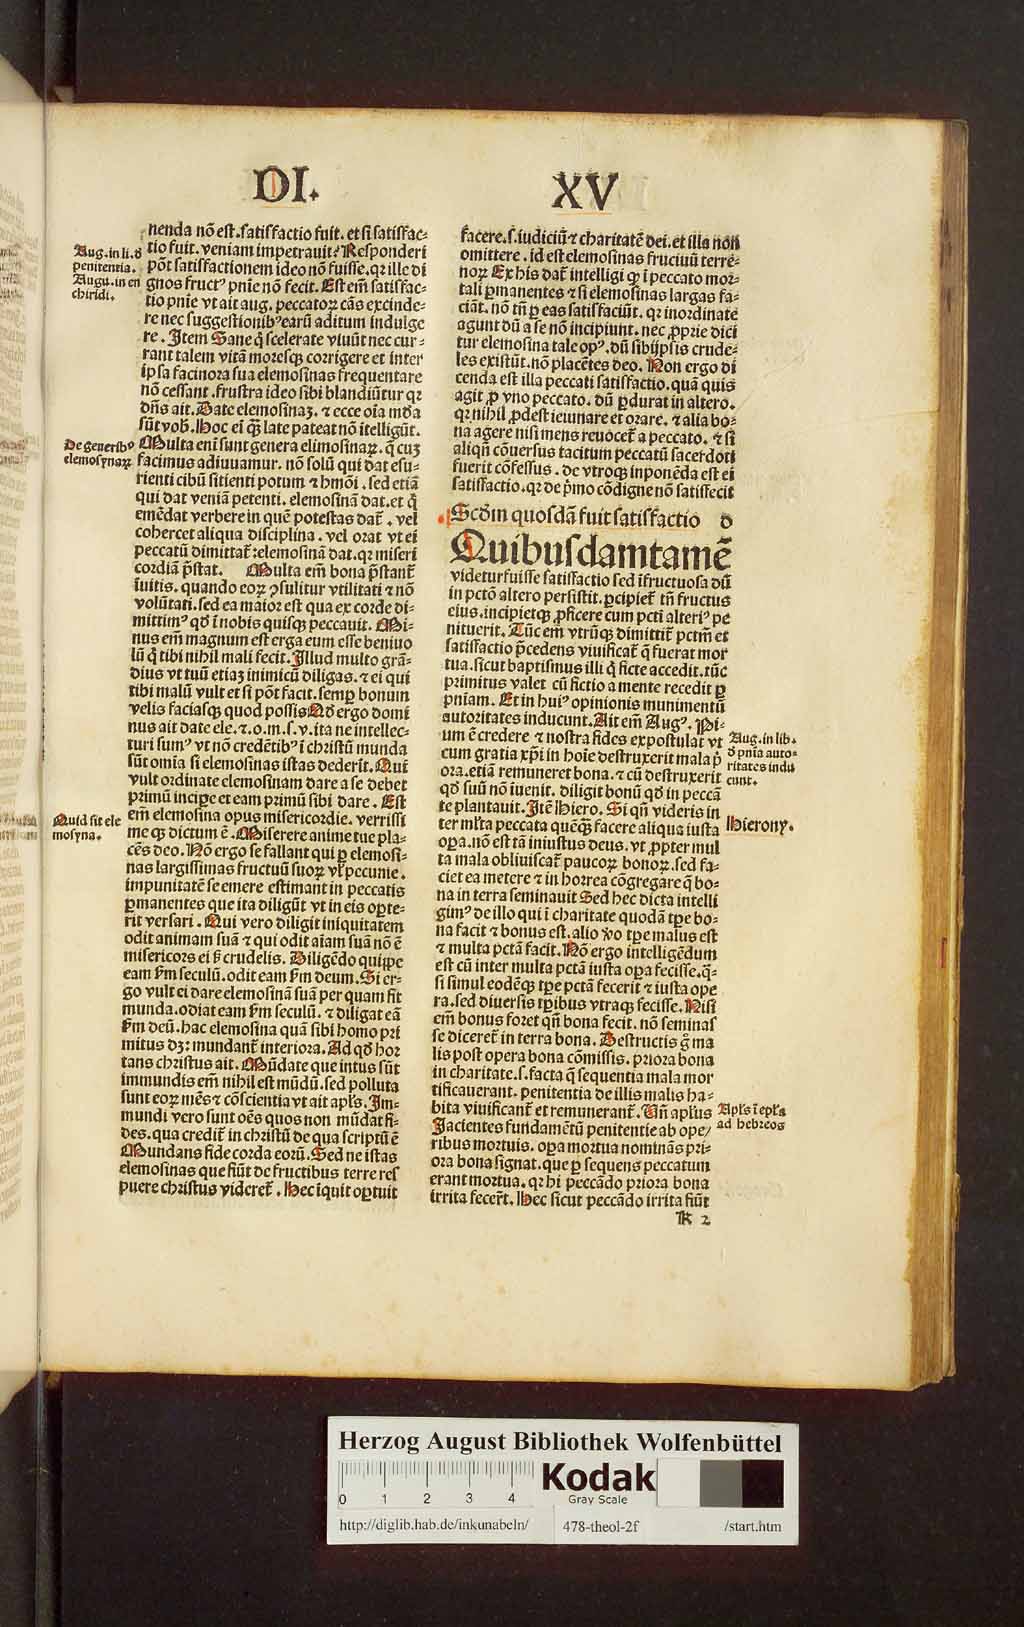 DI.
XV
nenda nō est. satisfactio fuit. et si satisfac-
tio fuit. veniam impetrauit? Responderi
pōt satisfactionem ideo nō fuisse. qꝛ ille di
gnos fructꝰ pnīe nō fecit. Est em̄ satisfac-
tio pnīe vt ait aug. peccatoꝝ cās excinde-
re nec suggestionibꝰ earū aditum indulge
re. Item Sane q̄ scelerate viuūt nec cur-
rant talem vitā moresqꝫ corrigere et inter
ipsa facinora sua elemosinas frequentare
nō cessant. frustra ideo sibi blandiūtur qꝛ
dn̄s ait. Date elemosinaꝫ. ⁊ ecce oīa mūda
sūt vob̄. Hoc ei q̄ꝫ late pateat nō ītelligūt.
Multa enī sunt genera elimosinaꝝ. q̄ cuꝫ
facimus adiuuamur. nō solū qui dat esu-
rienti cibū sitienti potum ⁊ hmōi. sed etiā
qui dat veniā petenti. elemosinā dat. et q̄
emēdat verbere in quē potestas dat̄. vel
cohercet aliqua disciplina. vel orat vt ei
peccatū dimittat̄: elemosinā dat. qꝛ miseri
cordiā p̄stat. Multa em̄ bona p̄stant̄
īuitis. quando eoꝝ ꝯsulitur vtilitati ⁊ nō
volūtati. sed ea maior est qua ex corde di-
mittimꝰ qd̄ ī nobis quisqꝫ peccauit. Mi-
nus em̄ magnum est erga eum esse beniuo
lū q̄ tibi nihil mali fecit. Illud multo grā-
dius vt tuū etiaꝫ inimicū diligas. ⁊ ei qui
tibi malū vult et si pōt facit. semꝑ bonum
velis faciasqꝫ quod possis Ad ergo domi
nus ait date ele. ⁊ o. m. s. v. ita ne intellec-
turi sumꝰ vt nō credētibꝰ ī christū munda
sūt omīa si elemosinas istas dederīt. Qui
vult ordinate elemosinam dare a se debet
primū incipe et eam primū sibi dare. Est
em̄ elemosina opus misericordie. verissi
me qꝫ dictum ē. Miserere anime tue pla-
cēs deo. Nō ergo se fallant qui ꝑ elemosi-
nas largissimas fructuū suoꝝ vl̄ pecunie.
impunitatē se emere estimant in peccatis
ꝑmanentes que ita diligūt vt in eis opte-
rit versari. Qui vero diligit iniquitatem
odit animam suā ⁊ qui odit aīam suā nō ē
misericors ei ꝫ crudelis. Diligēdo quippe
eam ẜm seculū. odit eam ẜm deum. Si er-
go vult ei dare elemosinā suā per quam fit
munda. odiat eam ẜm seculū. ⁊ diligat eā
ẜm deū. hac elemosina quā sibi homo pri
mitus dꝫ: mundant̄ interiora. Ad qd̄ hor
tans christus ait. Mūdate que intus sūt
immundis em̄ nihil est mūdū. sed polluta
sunt eoꝝ mēs ⁊ cōscientia vt ait apl̄s. Im-
mundi vero sunt oēs quos non mūdat fi-
des. qua credit̄ in christū de qua scriptū ē
Mundans fide corda eorū. Sed ne istas
elemosinas que fiūt de fructibus terre res
puere christus videret̄. Hec īquit oꝑtuit
Aug. in li. d̄
penitentia.
Augu. in en
chiridi.
De generibꝰ
elemosynaꝝ
Quid sit ele
mosyna.
facere. s. iudiciū ⁊ charitatē dei. et illa non
omittere. id est elemosinas fructuū terre-
noꝝ Ex his dat̄ intelligi qꝫ ī peccato mor-
tali ꝑmanentes ⁊ si elemosinas largas fa-
ciāt. nō tn̄ ꝑ eas satisfaciūt. qꝛ inordinate
agunt dū a se nō incipiunt. nec ꝓprie dici
tur elemosina tale opꝰ. dū sibiipsis crude-
les existūt. nō placētes deo. Non ergo di
cenda est illa peccati satisfactio. quā quis
agit ꝓ vno peccato. dū ꝑdurat in altero.
qꝛ nihil ꝓdest ieiunare et orare. ⁊ alia bo-
na agere nisi mens reuocet̄ a peccato. ⁊ si
aliqn̄ cōuersus tacitum peccatū sacerdoti
fuerit cōfessus. de vtroqꝫ inponēda est ei
satisfactio. qꝛ de p̄mo cōdigne nō satisfecit
Scd̄m quosdā fuit satisfactio d
Quibusdam tamē
videtur fuisse satisfactio sed īfructuosa dū
in pctō altero persistit. ꝑcipiet̄ tn̄ fructus
eius. incipietqꝫ ꝓficere cum pctī alteriꝰ pe
nituerit. Tūc em̄ vtrūqꝫ dimittit̄ pctm̄ et
satisfactio p̄cedens viuificat̄ q̄ fuerat mor
tua. sicut baptismus illi q̄ ficte accedit. tūc
primitus valet cū fictio a mente recedit ꝑ
pn̄iam. Et in huiꝰ opinionis munimentū
autoritates inducunt. Ait em̄ Augꝰ. Pi-
um ē credere ⁊ nostra fides expostulat vt
cum gratia xp̄i in hoīe destruxerit mala p̄
ora. etiā remuneret bona. ⁊ cū destruxerit
qd̄ suū nō īuenit. diligit bonū qd̄ in peccā
te plantauit. Itē Hiero. Si qn̄ videris in
ter ml̄ta peccata quēqꝫ facere aliqua iusta
oꝑa. nō est tā iniustus deus. vt ꝓpter mul
ta mala obliuiscat̄ paucoꝝ bonoꝝ. sed fa-
ciet ea metere ⁊ in horrea cōgregare q̄ bo-
na in terra seminauit Sed hec dicta intelli
gimꝰ de illo qui ī charitate quodā tp̄e bo-
na facit ⁊ bonus est. alio v̄o tp̄e malus est
⁊ multa pctā facit. Nō ergo intelligēdum
est cū inter multa pctā iusta oꝑa fecisse. q̄-
si simul eodēqꝫ tp̄e pctā fecerit ⁊ iusta ope
ra. sed diuersis tp̄ibus vtraqꝫ fecisse. Nisi
em̄ bonus foret qn̄ bona fecit. nō seminas
se diceret̄ in terra bona. Destructis g̊ ma
lis post opera bona cōmissis. priora bona
in charitate. s. facta q̄ sequentia mala mor
tificauerant. penitentia de illis malis ha-
bita viuificant̄ et remunerant̄. Vn̄ apl̄us
Iacientes fundamētū penitentie ab ope/
ribus mortuis. oꝑa mortua nominās pri-
ora bona signat. que ꝑ sequens peccatum
erant mortua. qꝛ hi peccādo priora bona
irrita fecer̄t. Hec sicut peccādo irrita fiūt
K 2
Aug. in lib.
d̄ pnīa auto-
ritates indu
cunt.
Hierony.
Apl̄s ī epl̄a
ad hebreos
Herzog August Bibliothek Wolfenbüttel
0 1 2 3 4
Kodak
Gray Scale
http://diglib.hab.de/inkunabeln/ 478-theol-2f /start.htm